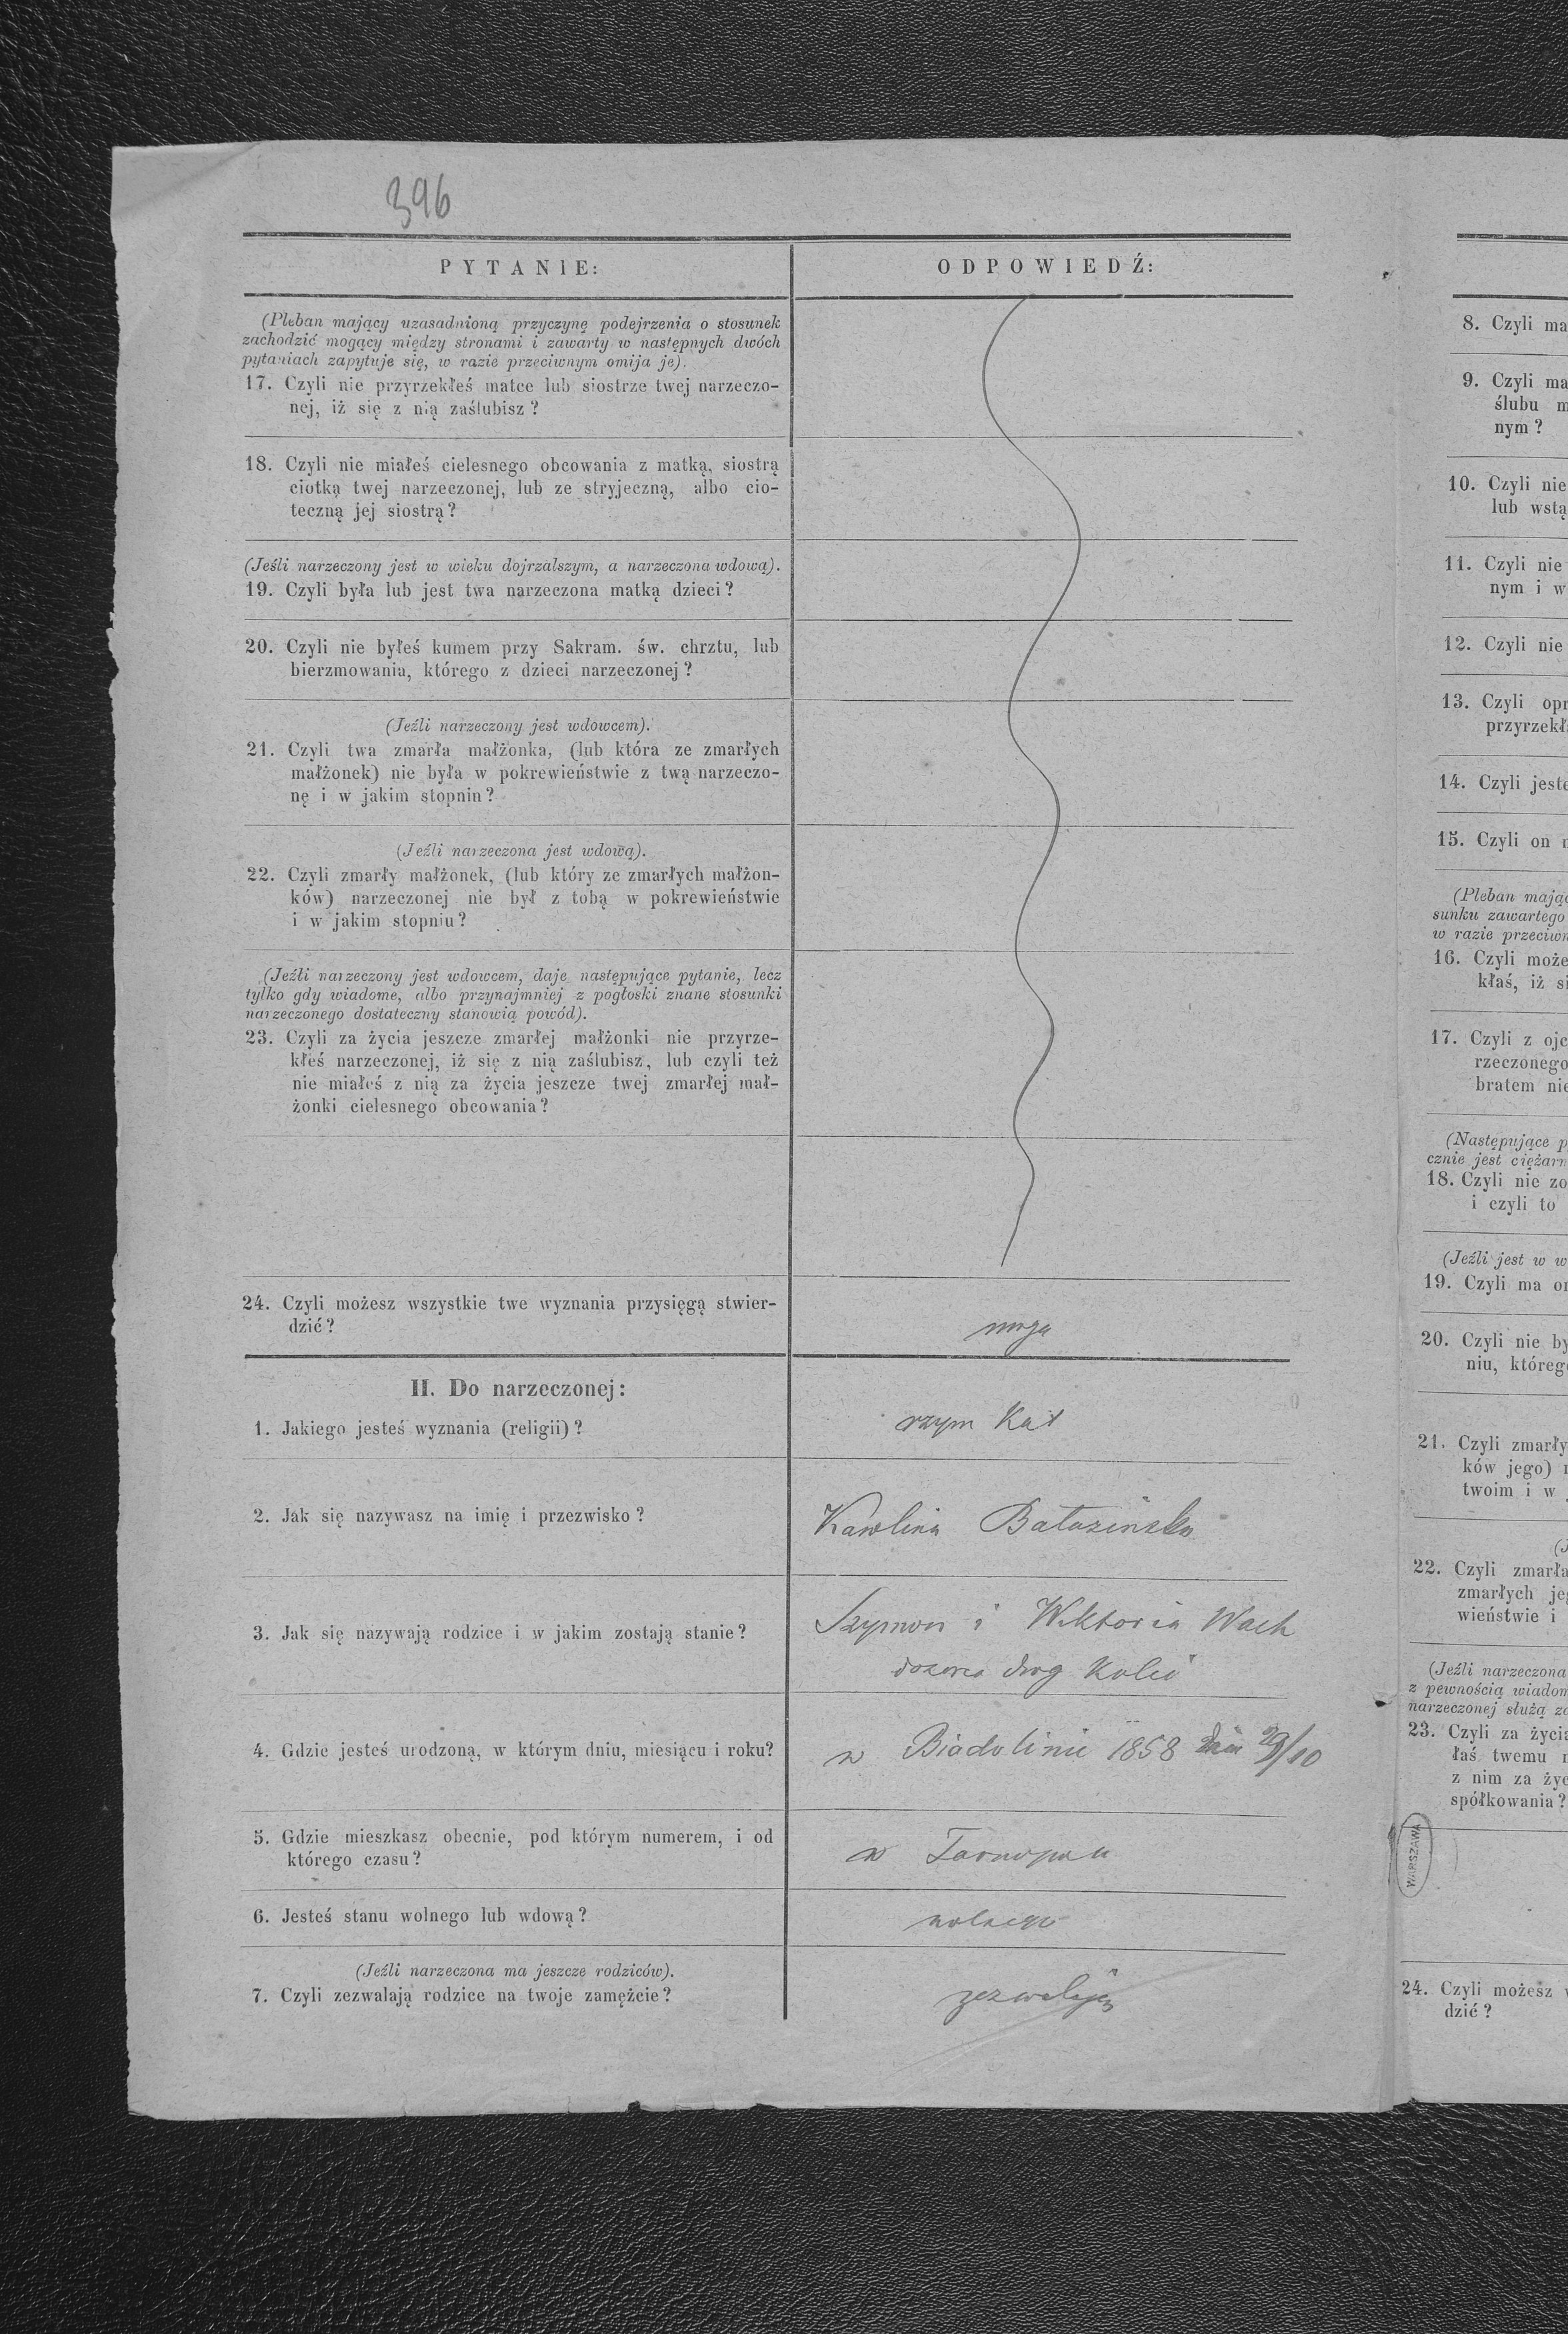 396
PYTANIE:
ODPOWIEDŹ:
(Pleban mający uzasadnioną przyczynę podejrzenia o stosunek
zachodzić mogący między stronami i zawarty w następnych dwóch
pytaniach zapytuje się, w razie przeciwnym omija je).
17. Czyli nie przyrzekłeś matce lub siostrze twej narzeczo-
nej, iż się z nią zaślubisz?
18. Czyli nie miałeś cielesnego obcowania z matką, siostrą
ciotką twej narzeczonej, lub ze stryjeczną, albo cio-
teczną jej siostrą?
(Jeśli narzeczony jest w wieku dojrzalszym, a narzeczona wdową).
19. Czyli była lub jest twa narzeczona matką dzieci?
20. Czyli nie byłeś kumem przy Sakram. św. chrztu, lub
bierzmowania, którego z dzieci narzeczonej?
(Jeźli narzeczony jest wdowcem).
21. Czyli twa zmarła małżonka, (lub która ze zmarłych
małżonek) nie była w pokrewieństwie z twą narzeczo-
nę i w jakim stopnin?
(Jeźli narzeczona jest wdową).
22. Czyli zmarły małżonek, (lub który ze zmarłych małżon-
ków) narzeczonej nie był z tobą w pokrewieństwie
i w jakim stopniu?
(Jeźli narzeczony jest wdowcem, daje następujące pytanie, lecz
tylko gdy wiadome, albo przynajmniej z pogłoski znane stosunki
narzeczonego dostateczny stanowią powód).
23. Czyli za życia jeszcze zmarłej małżonki nie przyrze-
kłeś narzeczonej, iż się z nią zaślubisz, lub czyli też
nie miałeś z nią za życia jeszcze twej zmarłej mał-
żonki cielesnego obcowania?
24. Czyli możesz wszystkie twe wyznania przysięgą stwier-
dzić?
mogę
II. Do narzeczonej:
1. Jakiego jesteś wyznania (religii)?
rzym Kat
2. Jak się nazywasz na imię i przezwisko?
Karolina
3. Jak się nazywają rodzice i w jakim zostają stanie?
Szymon i Wiktoria Wach
dozorca drog Kolei
4. Gdzie jesteś urodzoną, w którym dniu, miesiącu i roku?
w Biadolinie 1858 dnia 29/10
5. Gdzie mieszkasz obecnie, pod którym numerem, i od
którego czasu?
w Tarnopolu
6. Jesteś stanu wolnego lub wdową?
wolnego
(Jeźli narzeczona ma jeszcze rodziców).
7. Czyli zezwalają rodzice na twoje zamęźcie?
zezwalają
8. Czyli ma
9. Czyli ma
ślubu m
nym?
10. Czyli nie
lub wstą
11. Czyli nie
nym i w
12. Czyli nie
13. Czyli opr
przyrzekł
14. Czyli jeste
15. Czyli on
(Pleban mając
sunku zawartego
w razie przeciwn
16. Czyli może
kłaś, iż si
17. Czyli z ojc
rzeczonego
bratem nie
(Następujące p
cznie jest ciężarn
18. Czyli nie zo
i czyli to
(Jeźli jest w w
19. Czyli ma or
20. Czyli nie by
niu, któreg
21. Czyli zmarły
ków jego)
twoim i w
22. Czyli zmarła
zmarłych jeg
wieństwie i
(Jeźli narzeczona
z pewnością wiadom
narzeczonej służą za
23. Czyli za życia
łaś twemu
z nim za życ
spółkowania?
WARSZAWA
24. Czyli możesz
dzić?